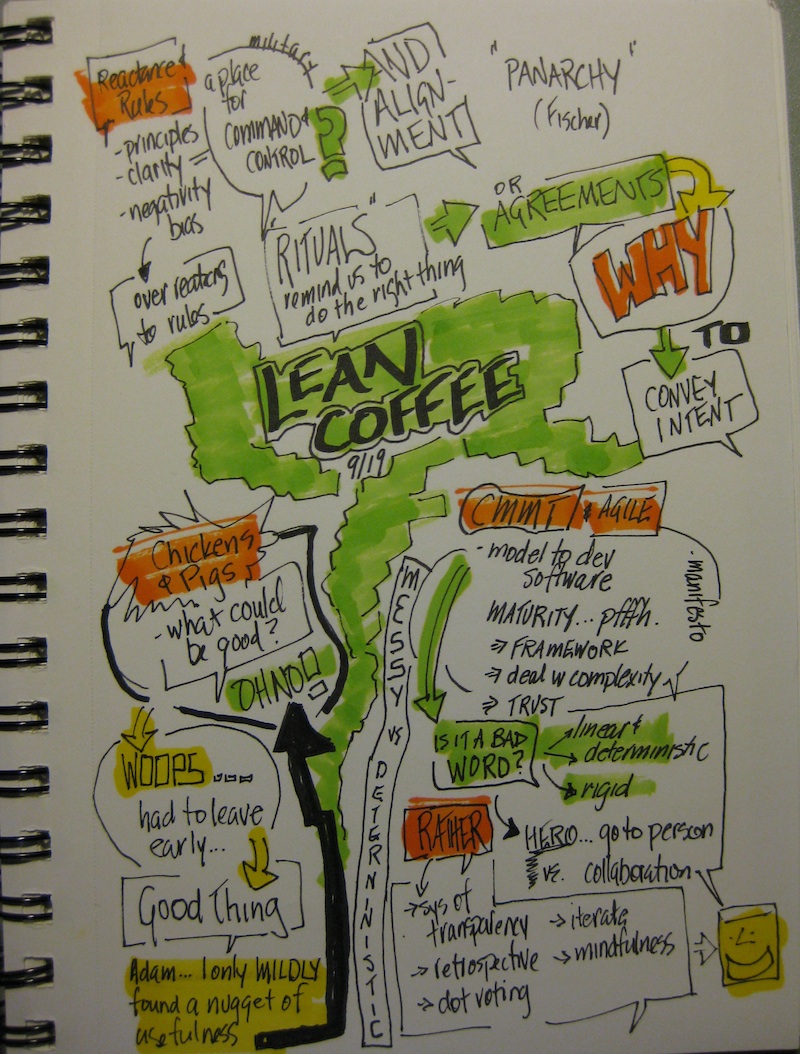 Reactance &
Rules
- principles
- clarity =
- negativity
bias
over reacting
to rules
military
a place
for
COMMAND &
CONTROL
?
AND
ALIGN-
MENT
"PANARCHY"
(Fischer)
"RITUALS"
remind us to
do the right thing
OR
AGREEMENTS
WHY
TO
CONVEY
INTENT
LEAN
COFFEE
9/19
Chickens
& Pigs
- what could
be good?
OH NO!!
WOOPS...
had to leave
early...
Good Thing
Adam... I only MILDLY
found a nugget of
usefulness
MESSY VS DETERNINISTIC
CMMI & AGILE
- model to dev
software
- manifesto
MATURITY... pfffh.
⇒ FRAMEWORK
⇒ deal w complexity
⇒ TRUST
IS IT A BAD
WORD?
linear &
deterministic
rigid
RATHER
HERO... go to person
vs. collaboration
→ sys of
transparency
→ retrospective
→ dot voting
→ iterate
→ mindfulness